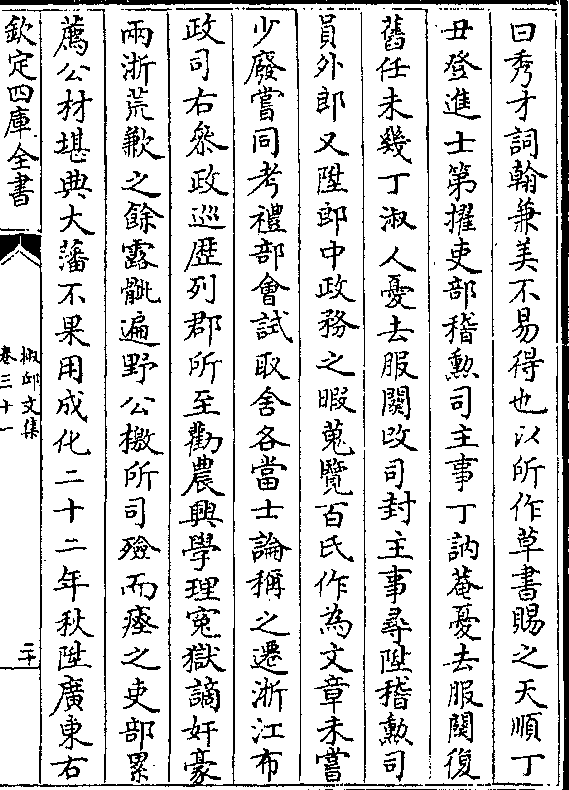 曰秀才詞翰兼美不易得也以所作草書賜之天順丁
丑登進士第擢吏部稽勲司主事丁訥菴憂去服闋復
舊任未幾丁淑人憂去服闋改司封主事尋陞稽勲司
員外郎又陞郎中政務之暇蒐覽百氏作為文章未嘗
少廢嘗同考禮部會試取舍各當士論稱之遷浙江布
政司右叅政巡歴列郡所至勸農興學理寃獄謫奸豪
兩浙荒歉之餘露骴遍野公檄所司殮而瘞之吏部累
薦公材堪典大藩不果用成化二十二年秋陞廣東右
欽定四庫全書
椒邱文集
卷三十一
二十